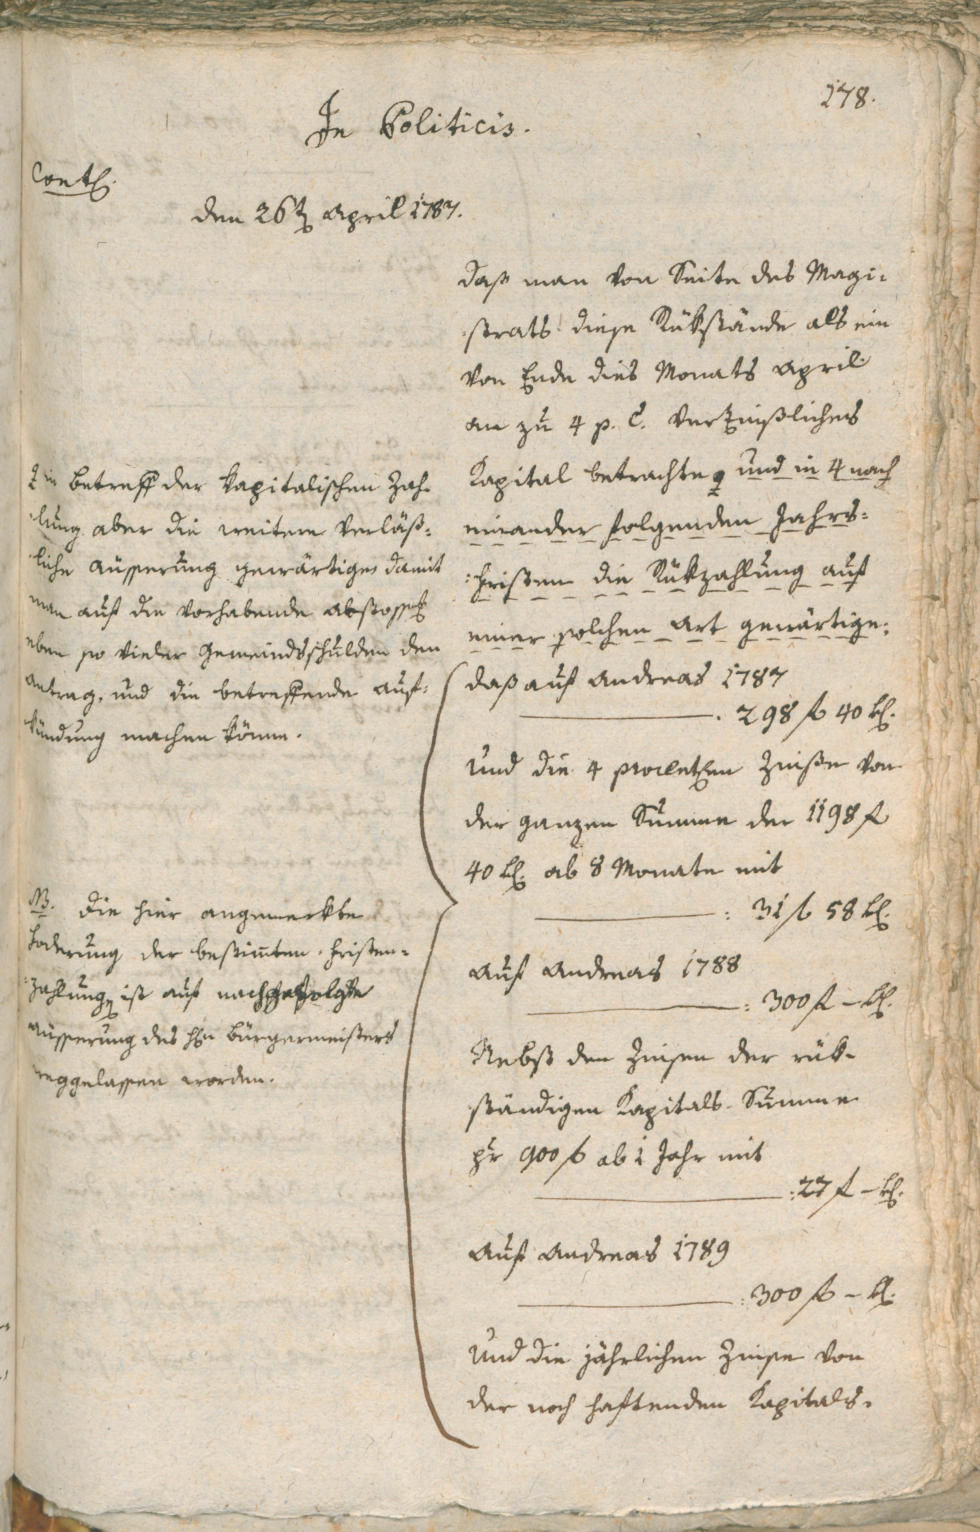 178.
In Politicis.
Cont.
den 26t April 1787.
daß man von Seite des Magi=
=strats diese Rükstände als ein
von Ende dies Monats April
an zu 4 p. C. verzinßliches
Kapital betrachte, und in 4 nach
einander folgenden Jahrs=
=fristen die Rükzahlung auf
einer solchen Art gewärtige:
daß auf Andreas 1787
298 f 40 k.
und die 4 procleten Zinße von
der ganzen Summe der 1198 f
40 k. ab 8 Monate mit
: 31 f 58 k.
Auf Andreas 1788
: 300 f – k.
Nebst den Zinsen der rük=
ständigen Kapitals-Summe
pr 900 f ab 1 Jahr mit
: 27 f – k.
Auf Andreas 1789
: 300 f – k.
Und die jährlichen Zinse von
der noch haftenden Kapitals=
in Betreff der Kapitalischen Zah=
=lung aber die weitere verläß=
=liche Äusserung gewärtige, damit
man auf die vorhabende Abstossung
eben so vieler Gemeindsschulden den
Antrag, und die betreffende Auf=
kündung machen könne.
NB. Die hier angemerkte
Foderung der bestimten Fristen=
=zahlung ist auf nachgefolgte
Äusserung des Hn Bürgermeisters
weggelassen worden.